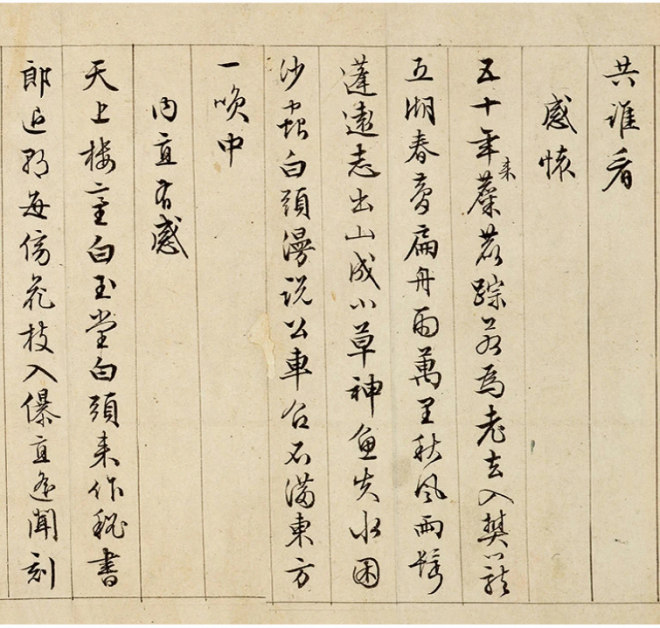 共誰看
感懷
五十年来麋鹿踪若為老去入樊籠
五湖春夢扁舟雨萬里秋風兩鬢
蓬遠志出山成小草神魚失水困
沙蟲白頭漫説公車召不滿東方
一咲中
内直有感
天上樓臺白玉堂白頭来作秘書
郎退朝每傍花枝入儤直遥聞刻